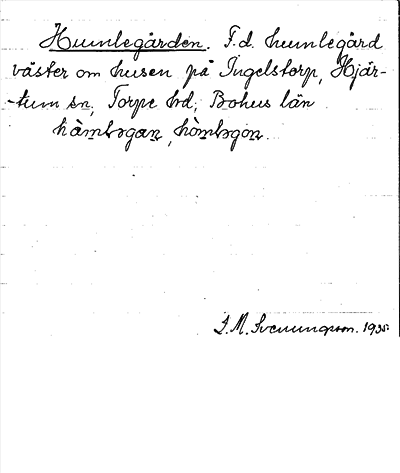 Humlegården. F.d. humlegård
väster om husen på Ingelstorp, Hjär-
-tum sn, Torpe hd, Bohus län
hòmləgan, hòmləgon.
S. M. Svenungsson. 1935